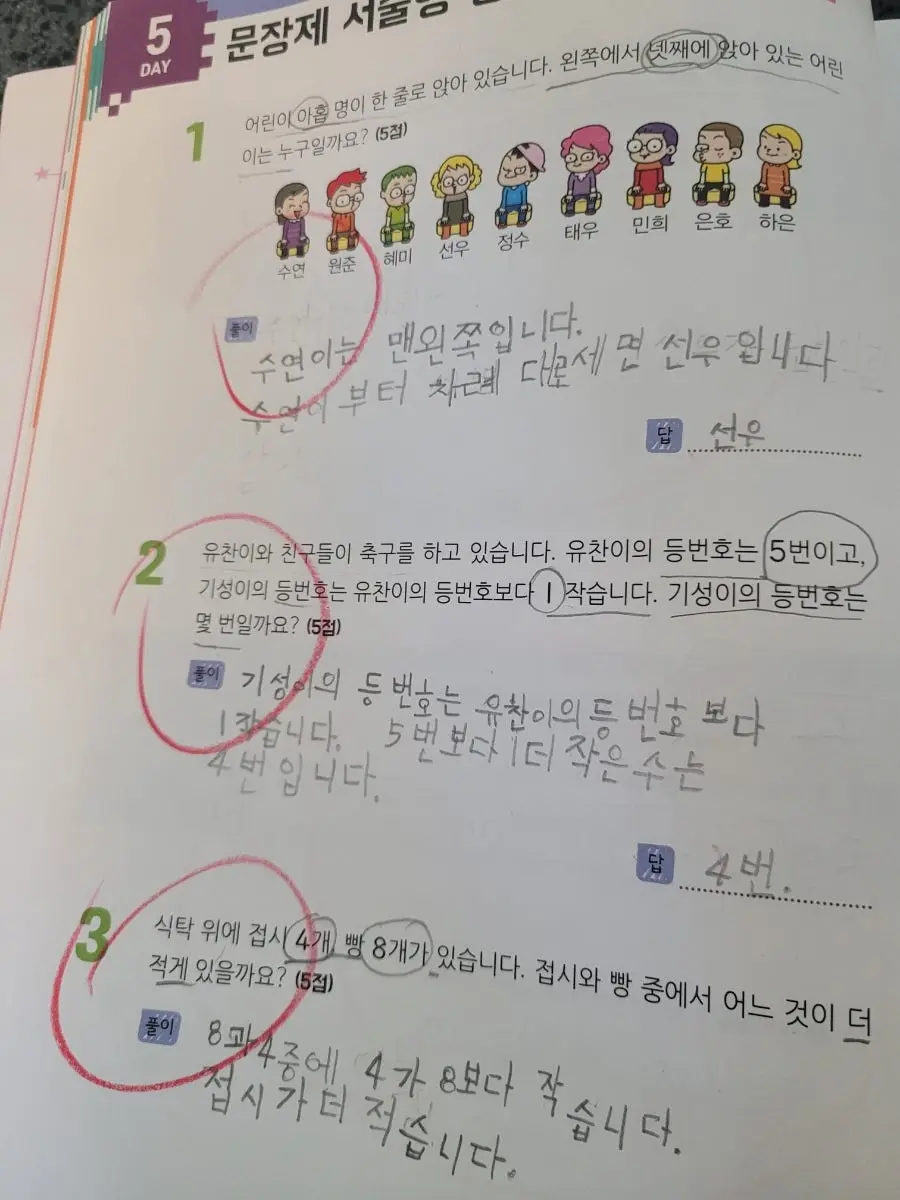 5
DAY
문장제 서술형
어린이 아홉 명이 한 줄로 앉아 있습니다. 왼쪽에서 넷째에 앉아 있는 어린
1
이는 누구일까요? (5점)
수연 원준 혜미 선우 정수 태우 민희 은호 하은
풀이
수연이는 맨왼쪽입니다.
수연이부터 차례 대로세면 선우입니다
답 선우
2 유찬이와 친구들이 축구를 하고 있습니다. 유찬이의 등번호는 5번이고,
기성이의 등번호는 유찬이의 등번호보다 1 작습니다. 기성이의 등번호는
몇 번일까요? (5점)
풀이 기성이의 등번호는 유찬이의등번호보다
1작습니다. 5번보다1더 작은수는
4번입니다.
답 4번.
3 식탁 위에 접시 4개, 빵 8개가 있습니다. 접시와 빵 중에서 어느 것이 더
적게 있을까요? (5점)
풀이 8과4중에 4가 8보다 작습니다.
접시가더 적습니다.